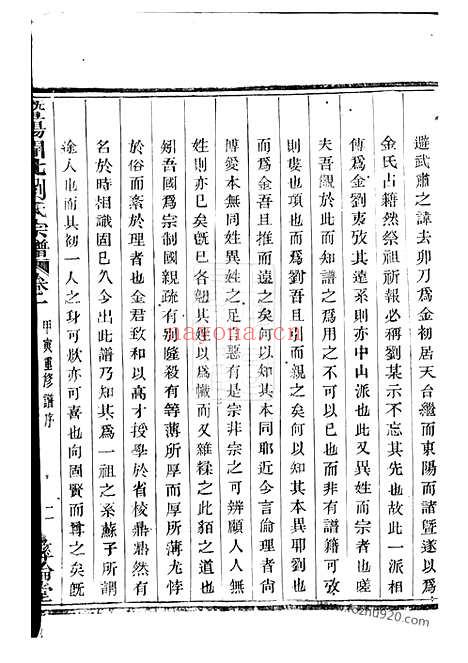 避武肅之諱去卯刀為金初居天台繼而東陽而諸暨遂以為
金氏占籍然祭祖祈報必稱劉某示不忘其先也故此一派相
傳為金劉夷攷其遠系則亦中山派也此又異姓而宗者也嗟
夫吾觀於此而知譜之為用之不可以已也而非有譜籍可攷
則婁也項也而為劉吾且引而親之矣何以知其本異耶劉也
而為金吾且推而遠之矣何以知其本同耶近今言倫理者尚
博愛本無同姓異姓之足自惡有是宗非宗之可辨顧人人無
姓則亦已矣旣已各冠其姓以為幟而又雜糅之此貊之道也
矧吾國為宗制國親疏有别隆殺有等薄所厚而厚所薄尤悖
於俗而紊於理者也金君致和以高才授學於省棱鼎鼎然有
名於時相識固已久今出此譜乃知其為一祖之系蘇子所謂
途人也而其初一人之身可歎亦可喜也向固賢而尊之矣旣
劉氏宗譜 卷一
甲寅重修譜序
二
www.kfzhu920.com